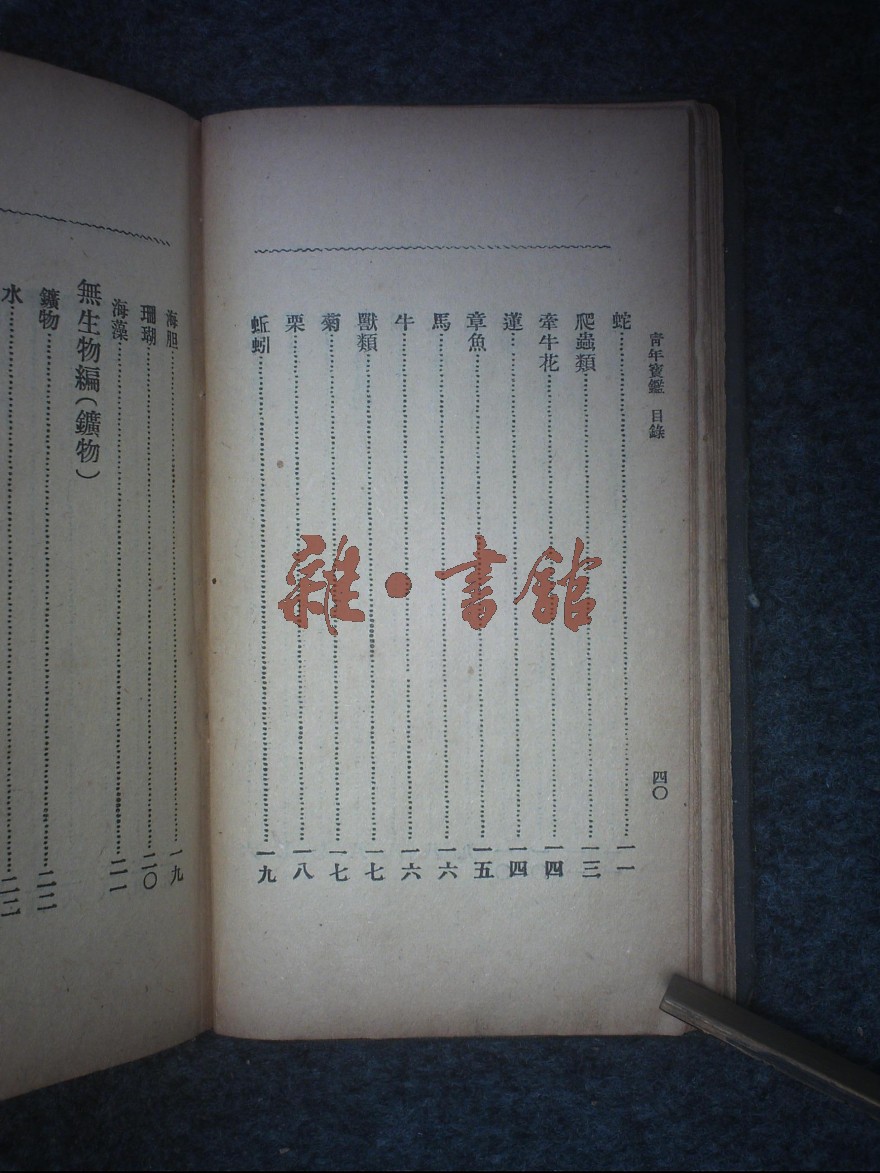 青年寶鑑 目錄 四〇
蛇……一一
爬蟲類……一三
牽牛花……一四
蓮……一四
章魚……一五
馬……一六
牛……一六
獸類……一七
菊……一七
栗……一八
蚯蚓……一九
海胆……一九
珊瑚……二〇
海藻……二一
無生物編(鑛物)
鑛物……二二
水……
雜•書館